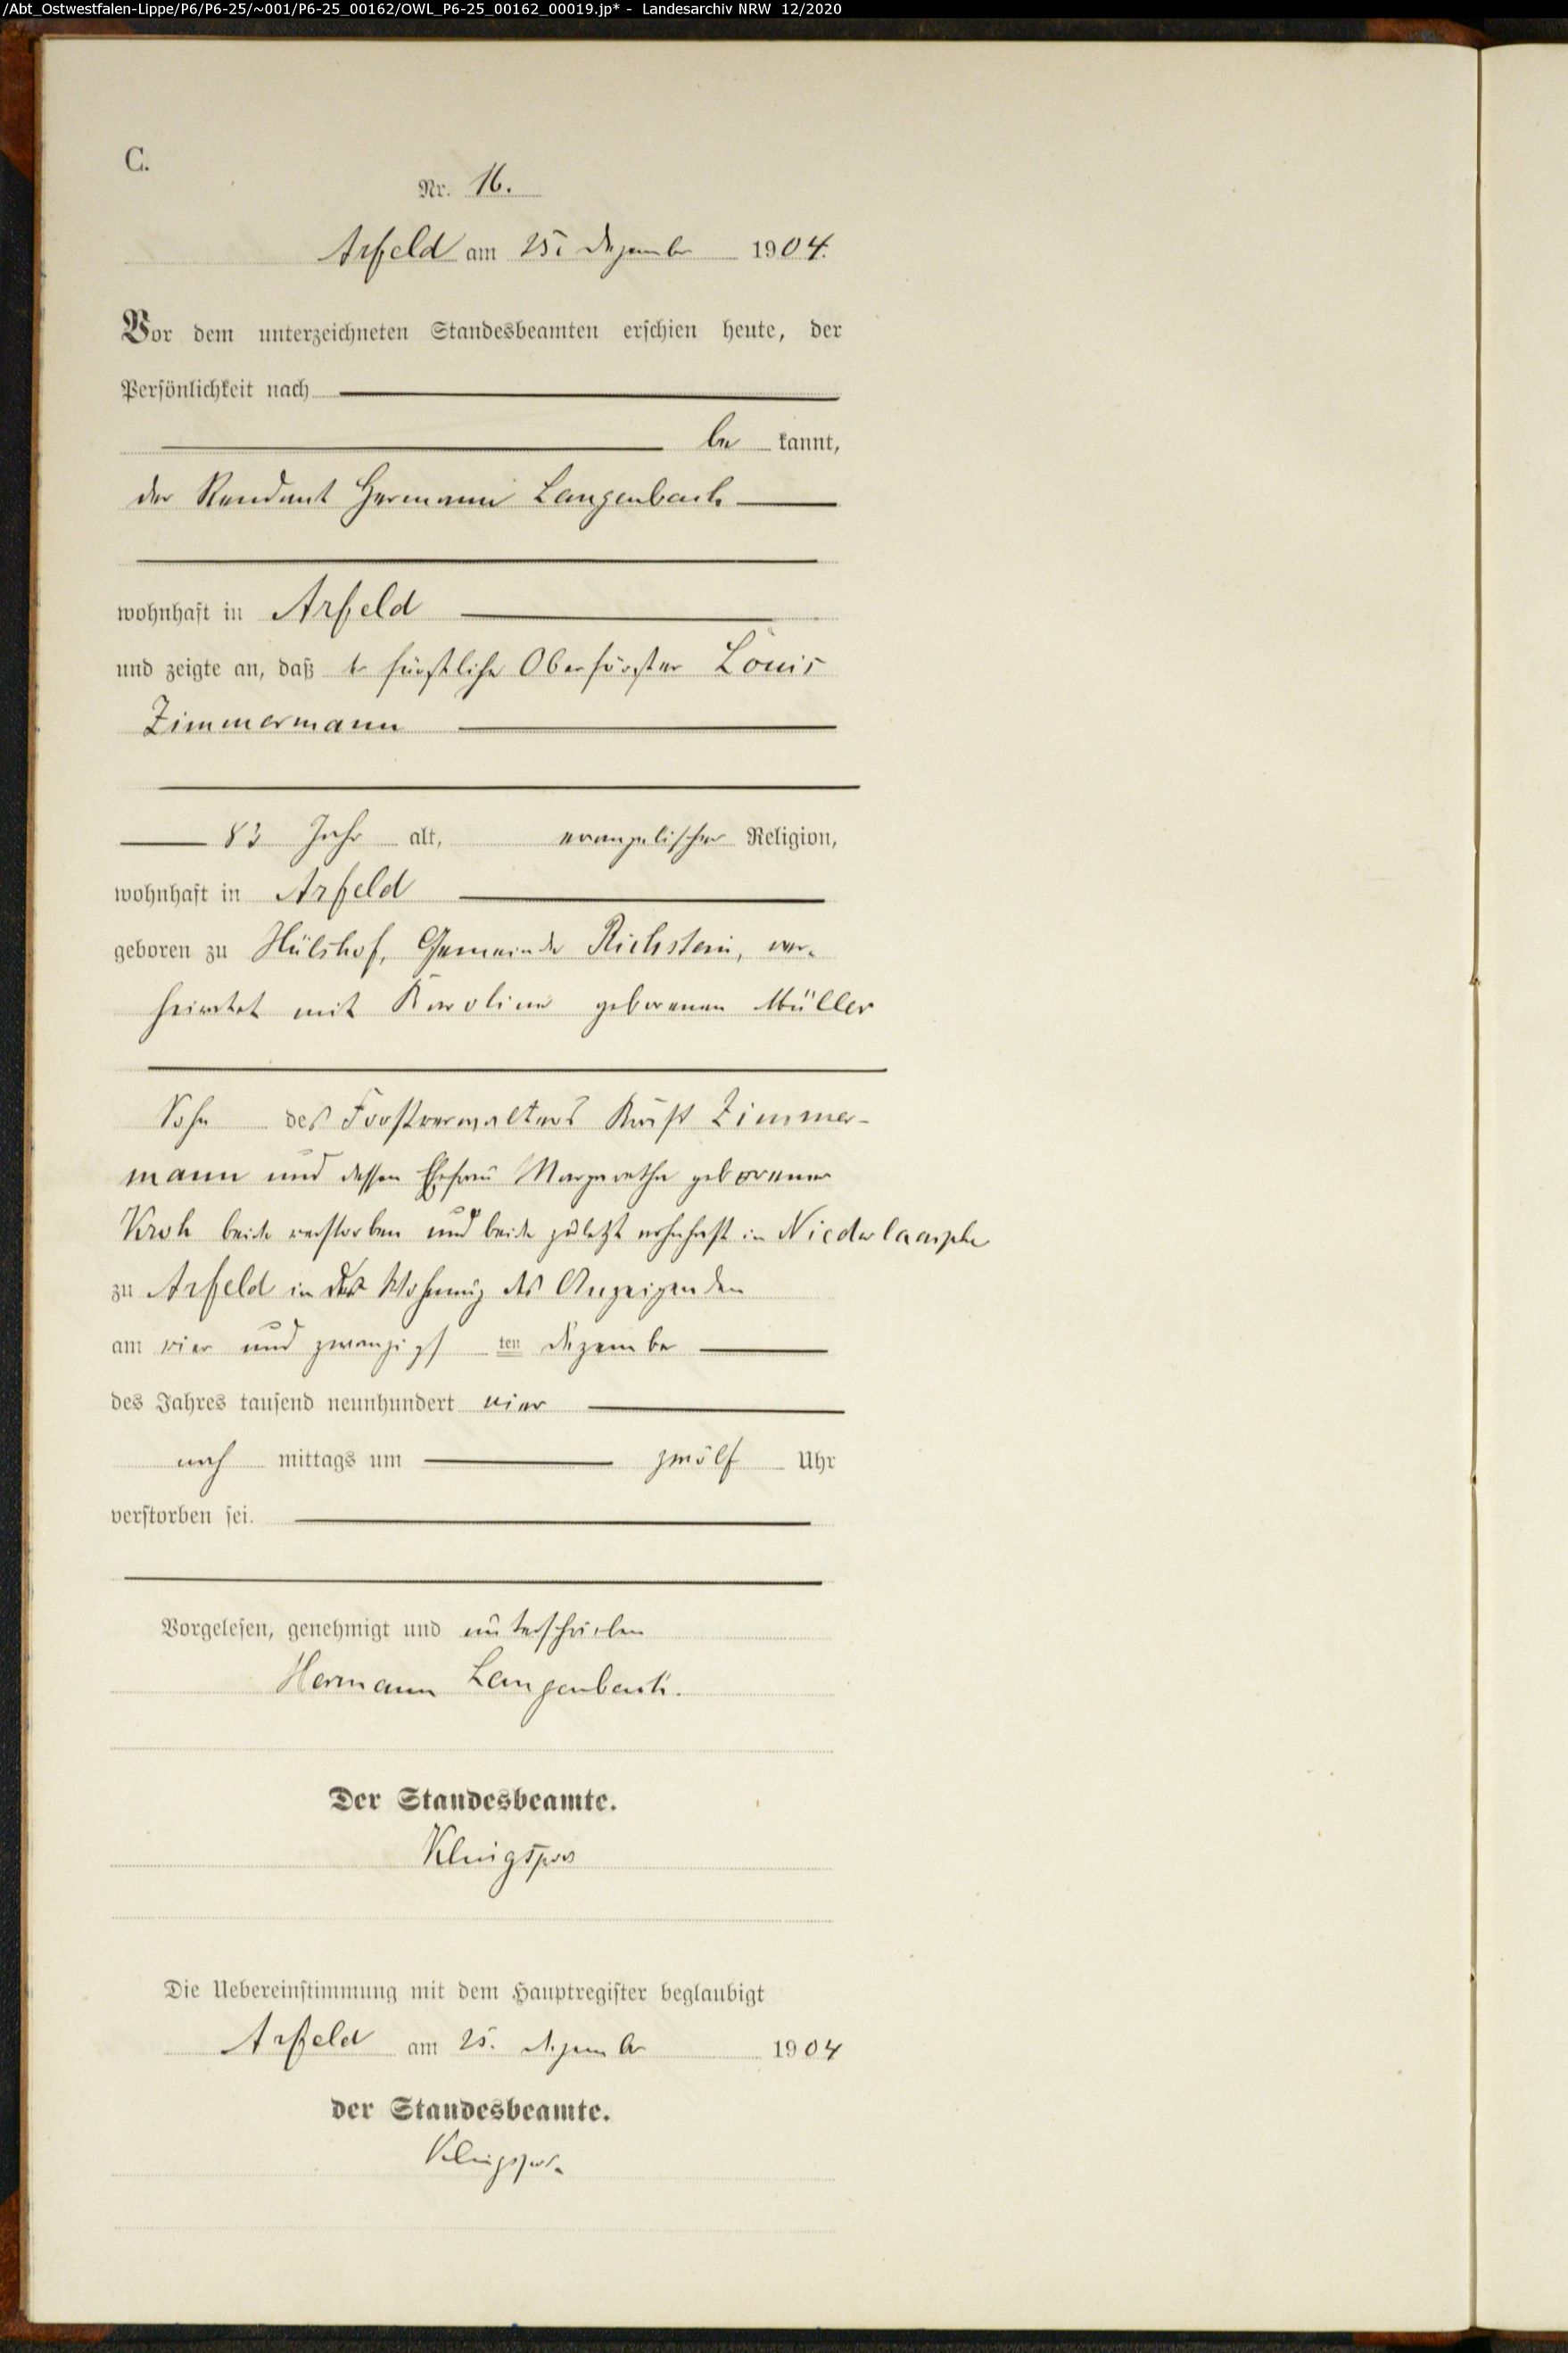 /Abt_Ostwestfalen-Lippe/P6/P6-25/~001/P6-25_00162/OWL_P6-25_00162_00019.jp* - Landesarchiv NRW 12/2020
C.
Nr. 16.
Arfeld am 25. Dezember 1904.
Vor dem unterzeichneten Standesbeamten erschien heute, der
Persönlichkeit nach
be kannt,
der Rendant Hermann Langenbach
wohnhaft in Arfeld
und zeigte an, daß der fürstliche Oberförster Louis
Zimmermann
83 Jahr alt, evangelischer Religion,
wohnhaft in Arfeld
geboren zu Hülshof, Gemeinde Richstein, ver-
heiratet mit Karoline geborenen Müller
Sohn des Forstverwalters Zimmer-
mann und dessen Ehefrau Margarethe geborener
Kroh beide verstorben und beide zuletzt wohnhaft in Niederlaasphe
zu Arfeld in der Wohnung des Anzeigenden
am vier und zwanzigs ten Dezember
des Jahres tausend neunhundert vier
nach mittags um zwölf Uhr
verstorben sei.
Vorgelesen, genehmigt und unterschrieben
Hermann Langenbach.
Der Standesbeamte.
Klingspor
Die Uebereinstimmung mit dem Hauptregister beglaubigt
Arfeld am 25. Dezember 1904
der Standesbeamte.
Klingspor